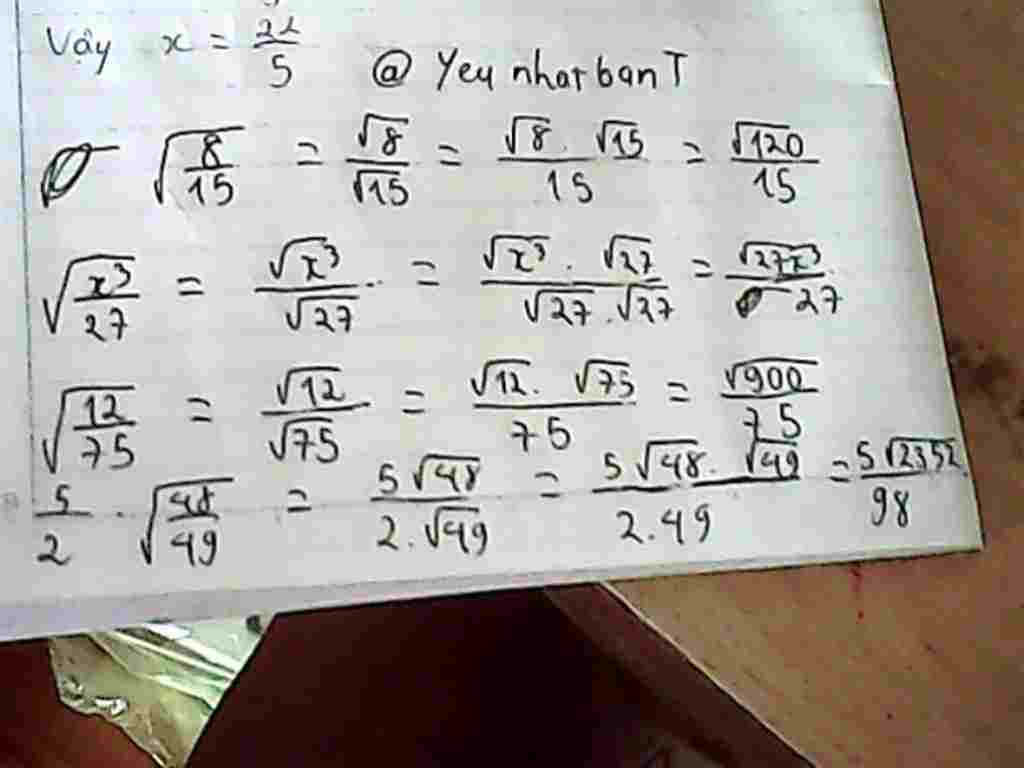 Vậy x = 22/5 @ Yeu nhat ban T
√(8/15) = √8/√15 = (√8 . √15)/15 = √120/15
√(x³/27) = √x³/√27 = (√x³ . √27)/(√27 . √27) = √27x³/27
√(12/75) = √12/√75 = (√12 . √75)/75 = √900/75
5/2 . √(48/49) = 5√48/(2.√49) = (5√48 . √49)/(2.49) = 5√2352/98